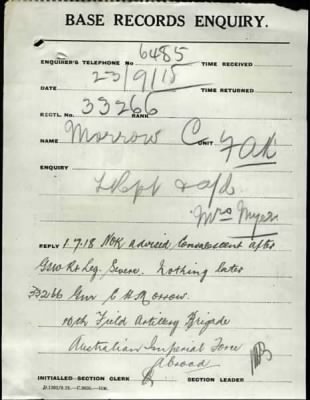 BASE RECORDS ENQUIRY.
ENQUIRER'S TELEPHONE No 6485 TIME RECEIVED
DATE 23/9/18 TIME RETURNED
REGTL. No. 33266 RANK
NAME Morrow C. UNIT FAB
ENQUIRY
Mrs Myers
REPLY 1.7.18 NOK advised Convalescent after
GSW Rt Leg. Severe. Nothing later
33266 Gnr C H Morrow
10th Field Artillery Brigade
Australian Imperial Force
Abroad
INITIALLED SECTION CLERK SECTION LEADER